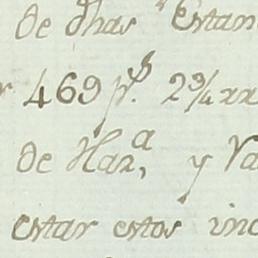 de dhas Estan
469 p.s 2 3/4 rr
de Haz.a, y Va
estar estos inc